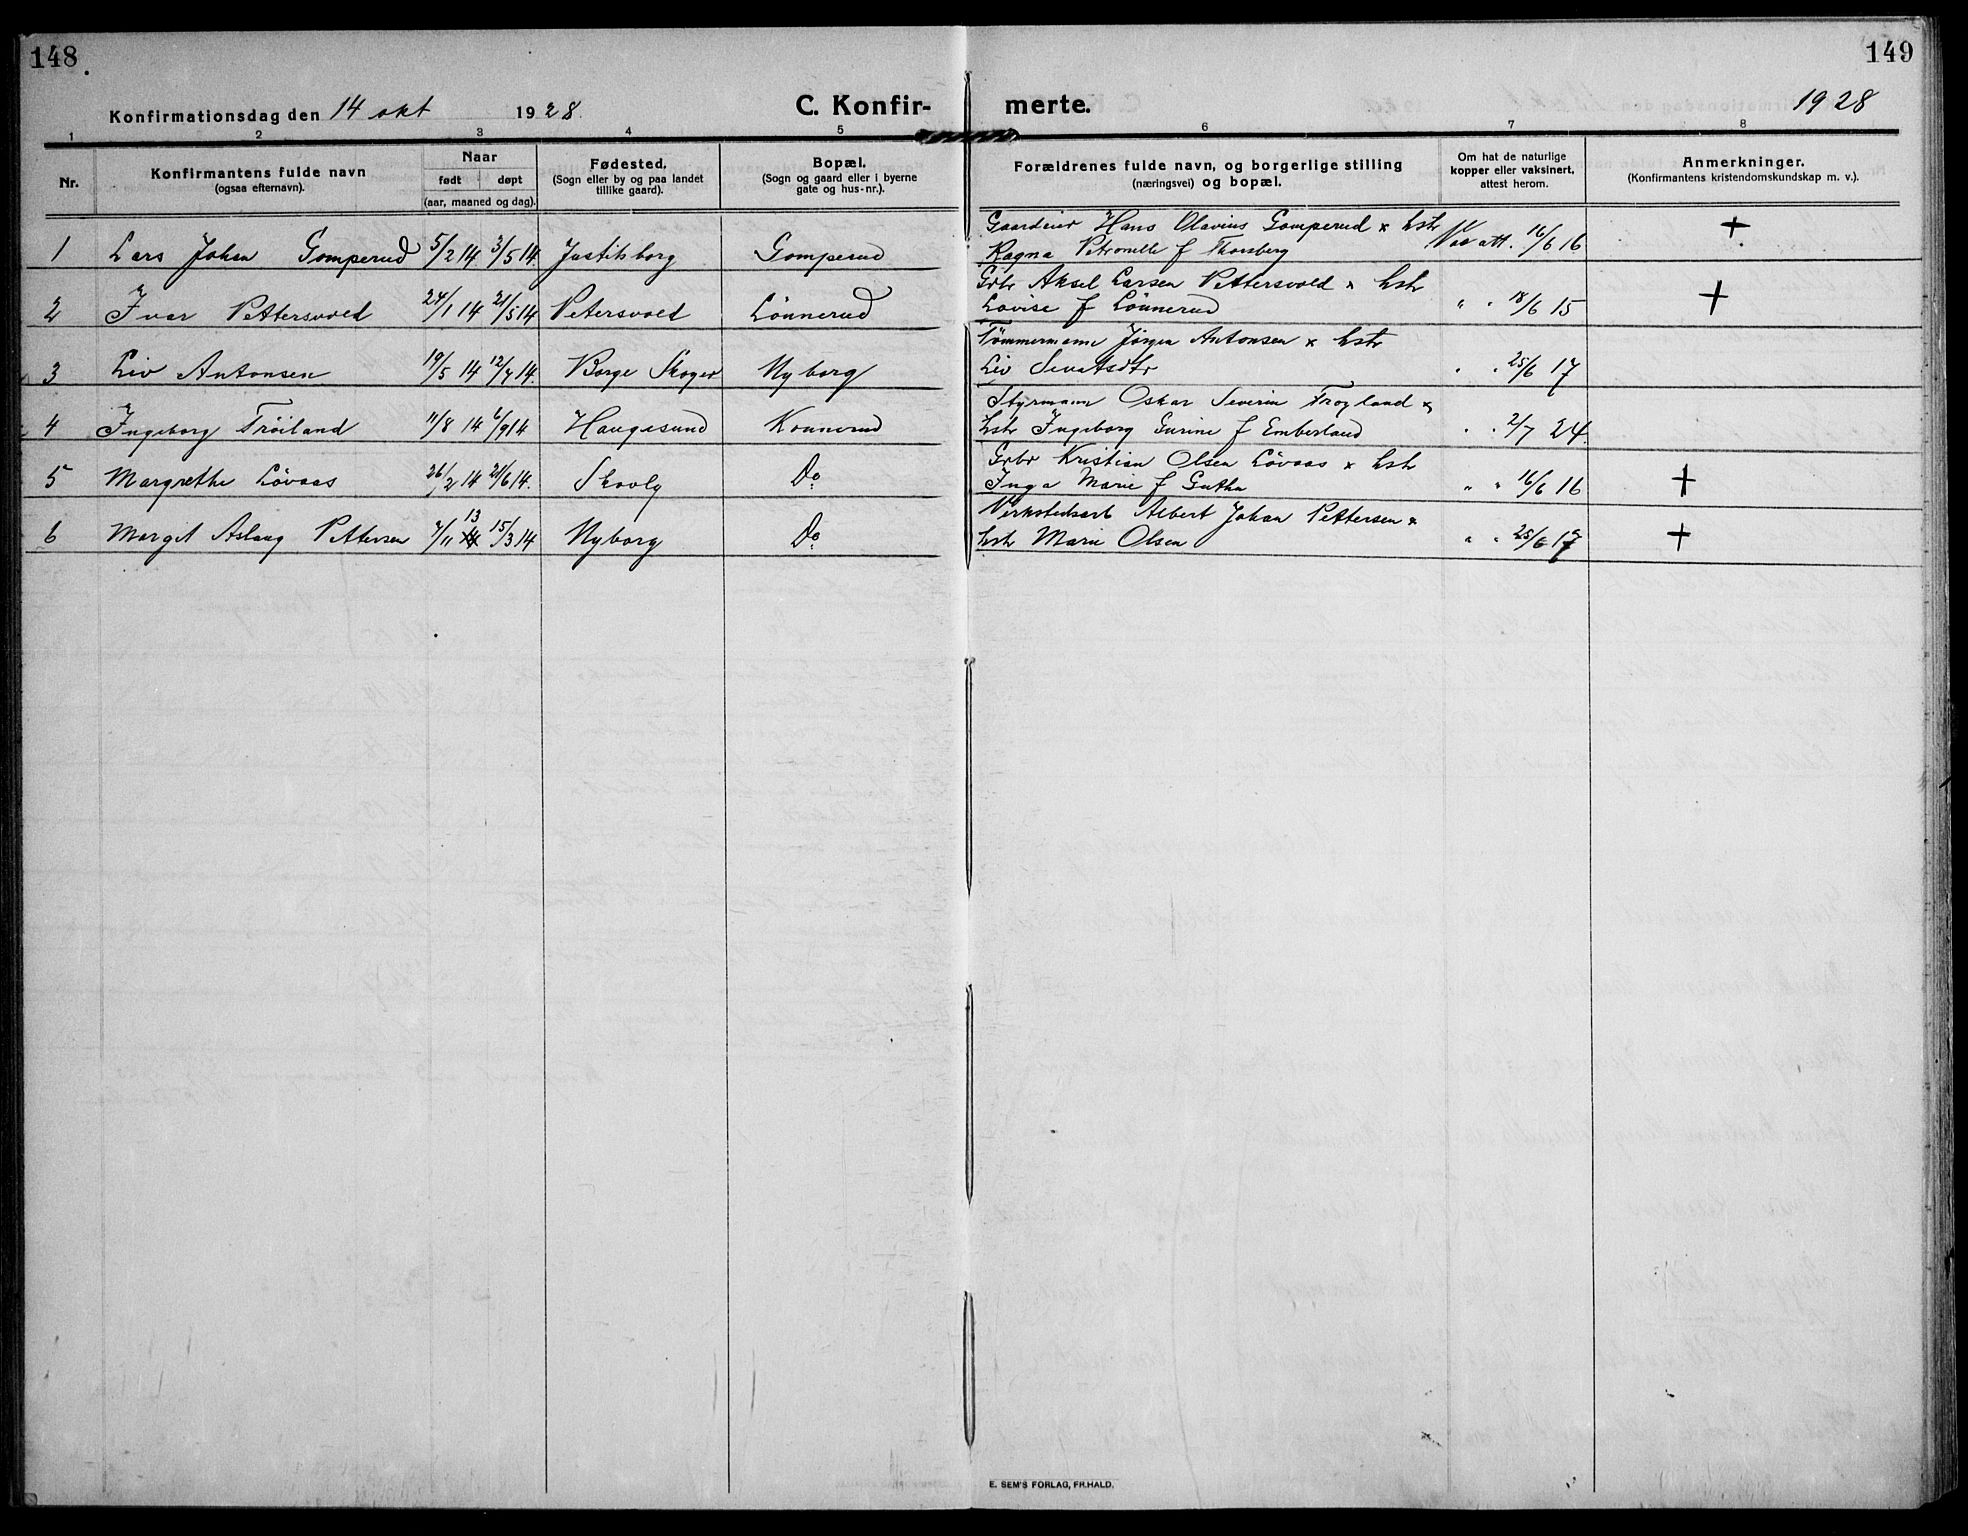 148
149
Konfirmationsdag den 14 okt 1928. C. Konfir-
merte. 1928
1 2 3 4 5 6 7 8
Nr.
Konfirmantens fulde navn
(ogsaa efternavn).
Naar
født døpt
(aar, maaned og dag).
Fødested.
(Sogn eller by og paa landet
tillike gaard).
Bopæl.
(Sogn og gaard eller i byerne
gate og hus-nr.).
Forældrenes fulde navn, og borgerlige stilling
(næringsvei) og bopæl.
Om hat de naturlige
kopper eller vaksinert,
attest herom.
Anmerkninger.
(Konfirmantens kristendomskundskap m. v.).
Gaardeier Hans Olavius Gomperud * hstr
1 Lars Johan Gomperud 5/2 14 3/5 14. Justitsborg Gomperud Ragna Petronelle f Thorsberg Vac att. 16/6 16 +
Grbr Aksel Larsen Pettersvold * hstr
2 Ivar Pettersvold 24/1 14 21/5 14 Petersvold Lönnerud Lovise f Lönnerud " " 18/6 15 +
Tømmermann Jørgen Antonsen * hstr
3 Liv Antonsen 19/5 14 12/7 14. Borge Skoger Nyborg Liv " " 25/6 17
Styrmann Oskar Severin Froyland *
4 Ingeborg Fröiland 11/8 14 6/9 14 Haugesund Konnerud hstr Ingeborg Gurine f Emberland " " 2/7 24.
Grbr Kristian Olsen Lövaas * hstr
5 Margrethe Lövaas 26/2 14 21/6 14. Skovly Do Inga Marie f Gutha " " 16/6 16 +
Verkstedsarb Albert Johan Pettersen *
6 Margit Aslaug Pettersen 7/11 13 15/3 14 Nyborg Do hstr Marie Olsen " " 25/6 17 +
E. SEM'S FORLAG, FR.HALD.